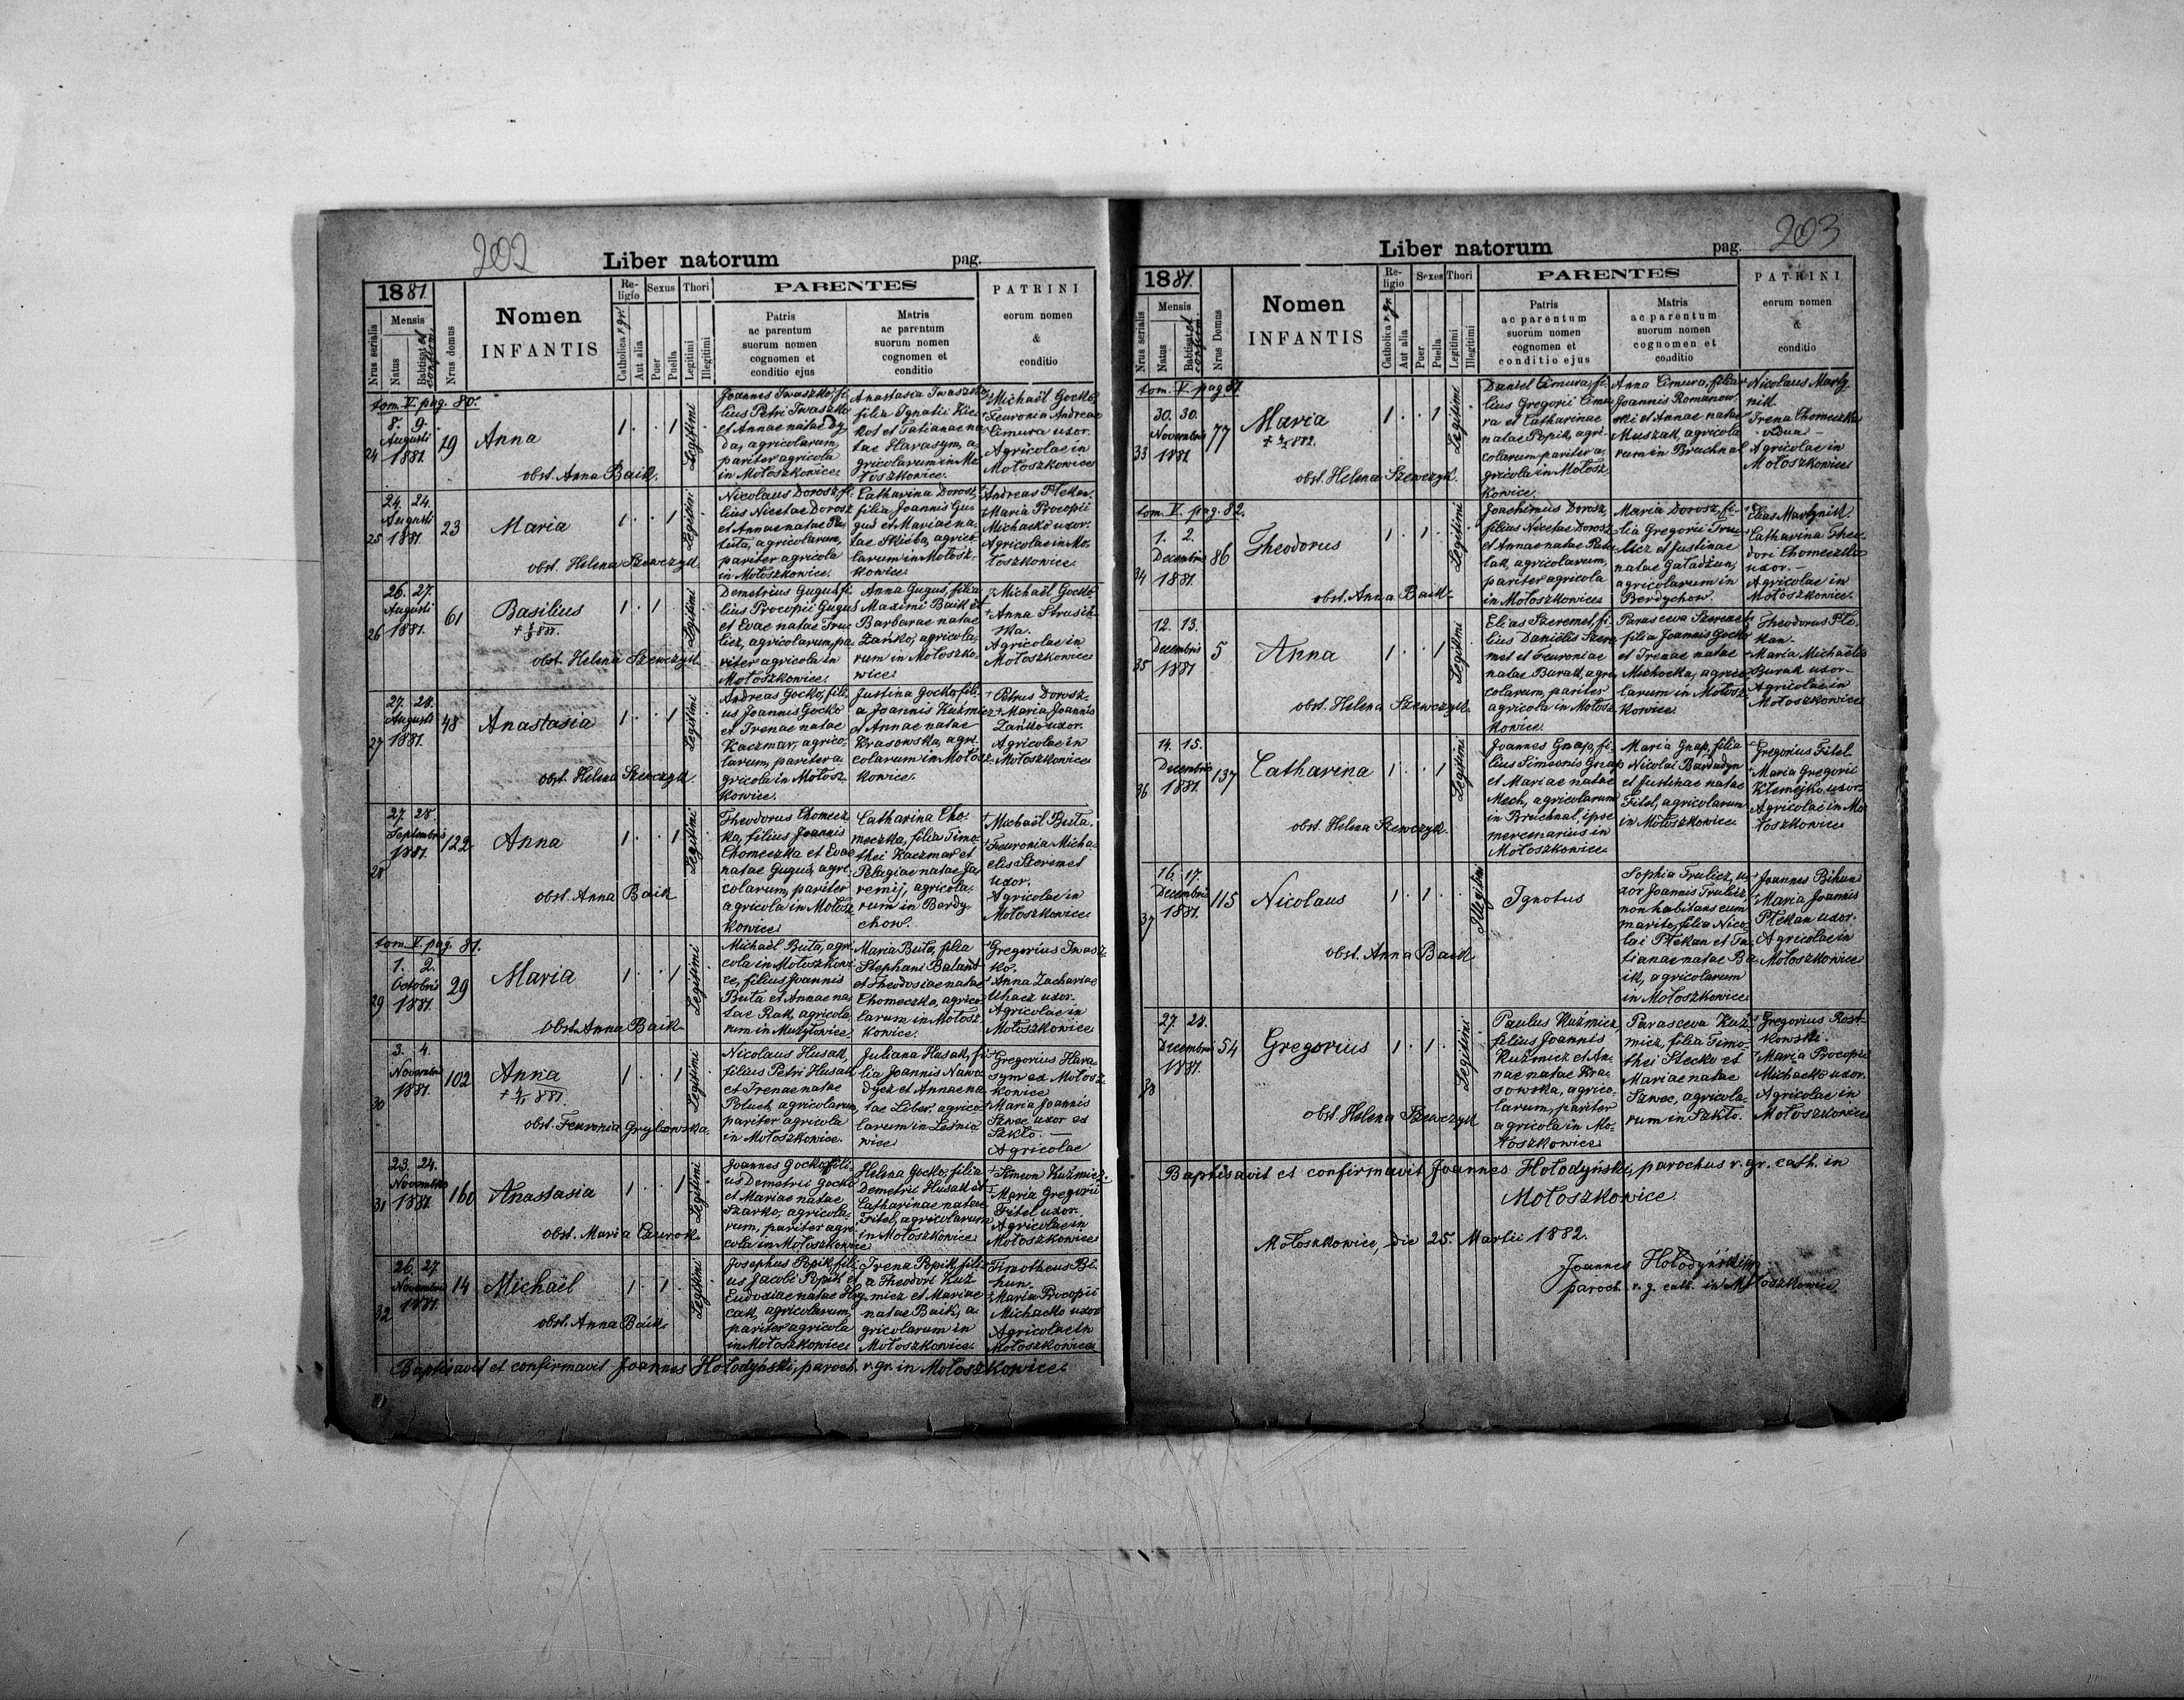 202
Liber natorum
pag.
1881.
Nrus serialis
Mensis
Natus
Babtisat et confirm
Nrus domus
Nomen
INFANTIS
Re-
ligio
Catholica r. gr.
Aut alia
Sexus
Puer
Puella
Thori
Legitimi
Illegitimi
PARENTES
Patris
ac parentum
suorum nomen
cognomen et
conditio ejus
Matris
ac parentum
suorum nomen
cognomen et
conditio
PATRINI
eorum nomen
&
conditio
tom. V. pag. 80.
24
8. 9.
Augusti
1881.
19
Anna
obst. Anna Baik.
1 . . 1
Legitimi
Joannes Iwaszko, fi-
lius Petri Iwaszko
et Annae natae Dy
da, agricolarum,
pariter agricola
in Mołoszkowice.
Anastasia Iwaszko,
filia Ignatii Kic
kot et Tatianae na
tae Harasym, a-
gricolarum in Mo
łoszkowice.
Michaël Gocko.
Feuronia Andreae
Cimura uxor.
Agricolae in
Mołoszkowice
25
24. 24.
Augusti
1881.
23
Maria
obst. Helena Szewczyk.
1 . . 1
Legitimi
Nicolaus Dorosz, fi-
lius Nicetae Dorosz
et Annae natae Pa
luta, agricolarum,
pariter agricola
in Mołoszkowice.
Catharina Dorosz,
filia Joannis Gu-
guś et Mariae na-
tae Skiba, agrico
larum in Mołosz-
kowice.
Andreas Płekan.
Maria Procopii
Michaćko uxor.
Agricolae in Mo-
łoszkowice.
26
26. 27.
Augusti
1881.
61
Basilius
obst. Helena Szewczyk.
1 . 1
Legitimi
Demetrius Guguś, fi-
lius Procopii Guguś
et Evae natae Tru
licz, agricolarum, pa
riter agricola in
Mołoszkowice.
Anna Guguś, filia
Maximi Baik et
Barbarae natae
Zańko, agricola-
rum in Mołoszko-
wice.
Michaël Gocko.
Anna Strusiń-
ska.
Agricolae in
Mołoszkowice
27
27. 28.
Augusti
1881.
48
Anastasia
obst. Helena Szewczyk.
1 . . 1
Legitimi
Andreas Gocko, fili-
us Joannis Gocko
et Irenae natae
Kaczmar, agrico-
larum, pariter a
gricola in Mołosz
kowice.
Justina Gocko, fili-
a Joannis Kuźmicz
et Annae natae
Krasowska, agri-
colarum in Mołosz
kowice.
Petrus Dorosz.
Maria Joannis
Zańko uxor.
Agricolae in
Mołoszkowice.
28
27. 28.
Septembris
1881.
122
Anna
obst. Anna Baik
1 . . 1
Legitimi
Theodorus Chomecz
ka, filius Joannis
Chomeczka et Evae
natae Guguś, agri-
colarum, pariter
agricola in Mołosz
kowice.
Catharina Cho-
meczka, filia Timo-
thei Kaczmar et
Pelagiae natae Ja
remij, agricola-
rum in Berdy-
chow.
Michaël Buta.
Feuronia Micha-
elis Szeremet
uxor.
Agricolae in
Mołoszkowice
tom. V. pag. 81.
29
1. 2.
Octobris
1881.
29
Maria
obst. Anna Baik
1 . . 1
Legitimi
Michaël Buta, agri-
cola in Mołoszkowi-
ce, filius Joannis
Buta et Annae na-
tae Rak, agricola
rum in Mużyłowice.
Maria Buta, filia
Stephani Baland
et Theodosiae natae
Chomeczka, agrico
larum in Mołosz
kowice.
Gregorius Iwasz-
ko.
Anna Zachariae
Uhacz uxor.
Agricolae in
Mołoszkowice
30
3. 4.
Novembr.
1881.
102
Anna
obst. Feuronia Grybowska.
1 . . 1
Legitimi
Nicolaus Husak,
filius Petri Husak
et Irenae natae
Poluch, agricolarum,
pariter agricola
in Mołoszkowice.
Juliana Husak, fi-
lia Joannis Nawo
dycz et Annae na
tae Liber, agrico-
larum in Leśnio
wice
Gregorius Hara-
sym ex Mołosz
kowice
Maria Joannis
Szwec uxor ex
Szkło. —
Agricolae
31
23. 24.
Novembris
1881.
160
Anastasia
obst. Maria Czurok.
1 . . 1
Legitimi
Joannes Gocko, fili-
us Demetrii Gocko
et Mariae natae
Szarko, agricola-
rum, pariter agri-
cola in Mołoszkowice
Helena Gocko, filia
Demetrii Husak et
Catharinae natae
Fitel, agricolarum
in Mołoszkowice
Simeon Kuźmicz.
Maria Gregorii
Fitel uxor.
Agricolae in
Mołoszkowice
32
26. 27.
Novembris
1881.
14
Michaël
obst. Anna Baik.
1 . 1
Legitimi
Josephus Popik, fili-
us Jacobi Popik et
Eudoxiae natae Hry
cak, agricolarum,
pariter agricola
in Mołoszkowice
Irena Popik, fili-
a Theodori Kuź
micz et Mariae
natae Baik, a-
gricolarum in
Mołoszkowice.
Timotheus Bi-
hun.
Maria Procopii
Michaćko uxor
Agricolae in
Mołoszkowice
Baptisavit et confirmavit Joannes Hołodyński, paroch. r. gr. in Mołoszkowice.
203
Liber natorum
pag.
1881.
Nrus serialis
Mensis
Natus
Babtisat et confirm
Nrus Domus
Nomen
INFANTIS
Re-
ligio
Catholica r. gr.
Aut alia
Sexes
Puer
Puella
Thori
Legitimi
Illegitimi
PARENTES
Patris
ac parentum
suorum nomen
cognomen et
conditio ejus
Matris
ac parentum
suorum nomen
cognomen et
coaditio
PATRINI
eorum nomen
&
conditio
tom. V. pag 81.
33
30. 30.
Novembris
1881.
77
Maria
obst. Helena Szewczyk.
1 . . 1
Legitimi
Daniel Cimura, fi-
lius Gregorii Cimu
ra et Catharinae
natae Popik, agri-
colarum, pariter a-
gricola in Mołosz-
kowice.
Anna Cimura, filia
Joannis Romanow-
ski et Annae natae
Muszak, agricola
rum in Bruchnal
Nicolaus Marty
nik.
Irena Chomeczka
vidua —
Agricolae in
Mołoszkowice
tom. V. pag. 82.
34
1. 2.
Decembris
1881.
86
Theodorus
obst. Anna Baik.
1 . 1
Legitimi
Joachimus Dorosz,
filius Nicetae Dorosz
et Annae natae Palu
tak, agricolarum,
pariter agricola
in Mołoszkowice
Maria Dorosz, fi-
lia Gregorii Tru-
licz et Justinae
natae Gaładżun,
agricolarum in
Berdychow.
Elias Martynik.
Catharina Theo
dori Chomeczka
uxor. —
Agricolae in
Mołoszkowice.
35
12. 13.
Decembris
1881
5
Anna
obst. Helena Szewczyk.
1 . . 1
Legitimi
Elias Szeremet, fi-
lius Danielis Szere
met et Feuroniae
natae Burak, agri
colarum, pariter
agricola in Mołosz
kowice.
Parasceva Szeremet
filia Joannis Gocko
et Irenae natae
Michocka, agrico
larum in Mołosz
kowice.
Theodorus Płe-
kan.
Maria Michaëlis
Burak uxor.
Agricolae in
Mołoszkowice
36
14. 15.
Decembris
1881.
137
Catharina
obst. Helena Szewczyk.
1 . . 1
Legitimi
Joannes Gnap, fi-
lius Simeonis Gnap
et Mariae natae
Mech, agricolarum
in Bruchnal, ipse
mercenarius in
Mołoszkowice.
Maria Gnap, filia
Nicolai Bardadyn
et Justinae natae
Fitel, agricolarum
in Mołoszkowice
Gregorius Fitel
Maria Gregorii
Klemejko uxor.
Agricolae in Mo
łoszkowice
37
16. 17.
Decembris
1881.
115
Nicolaus
obst. Anna Baik
1 . 1
Illegitimi
Ignotus
Sophia Trulicz, u-
xor Joannis Trulicz,
non habitans cum
marito, filia Nico-
lai Płekan et Ta-
tianae natae Ba
ik, agricolarum
in Mołoszkowice
Joannes Bihun
Maria Joannis
Płekan uxor.
Agricolae in
Mołoszkowice
38
27. 28.
Decembris
1881.
54
Gregorius
obst. Helena Szewczyk
1 . 1
Legitimi
Paulus Kuźmicz,
filius Joannis
Kuźmicz et An-
nae natae Kra-
sowska, agrico-
larum, pariter
agricola in Mo-
łoszkowice
Parasceva Kuź-
micz, filia Timo-
thei Stecko et
Mariae natae
Szwec, agricola-
rum in Szkło.
Gregorius Rost-
kowski.
Maria Procopii
Michaćko uxor.
Agricolae in
Mołoszkowice
Baptisavit et confirmavit Joannes Hołodyński, parochus r. gr. cath. in
Mołoszkowice
Mołoszkowice, die 25. Martii 1882.
Joannes Hołodyński
paroch. r. g. cath. in Mołoszkowice